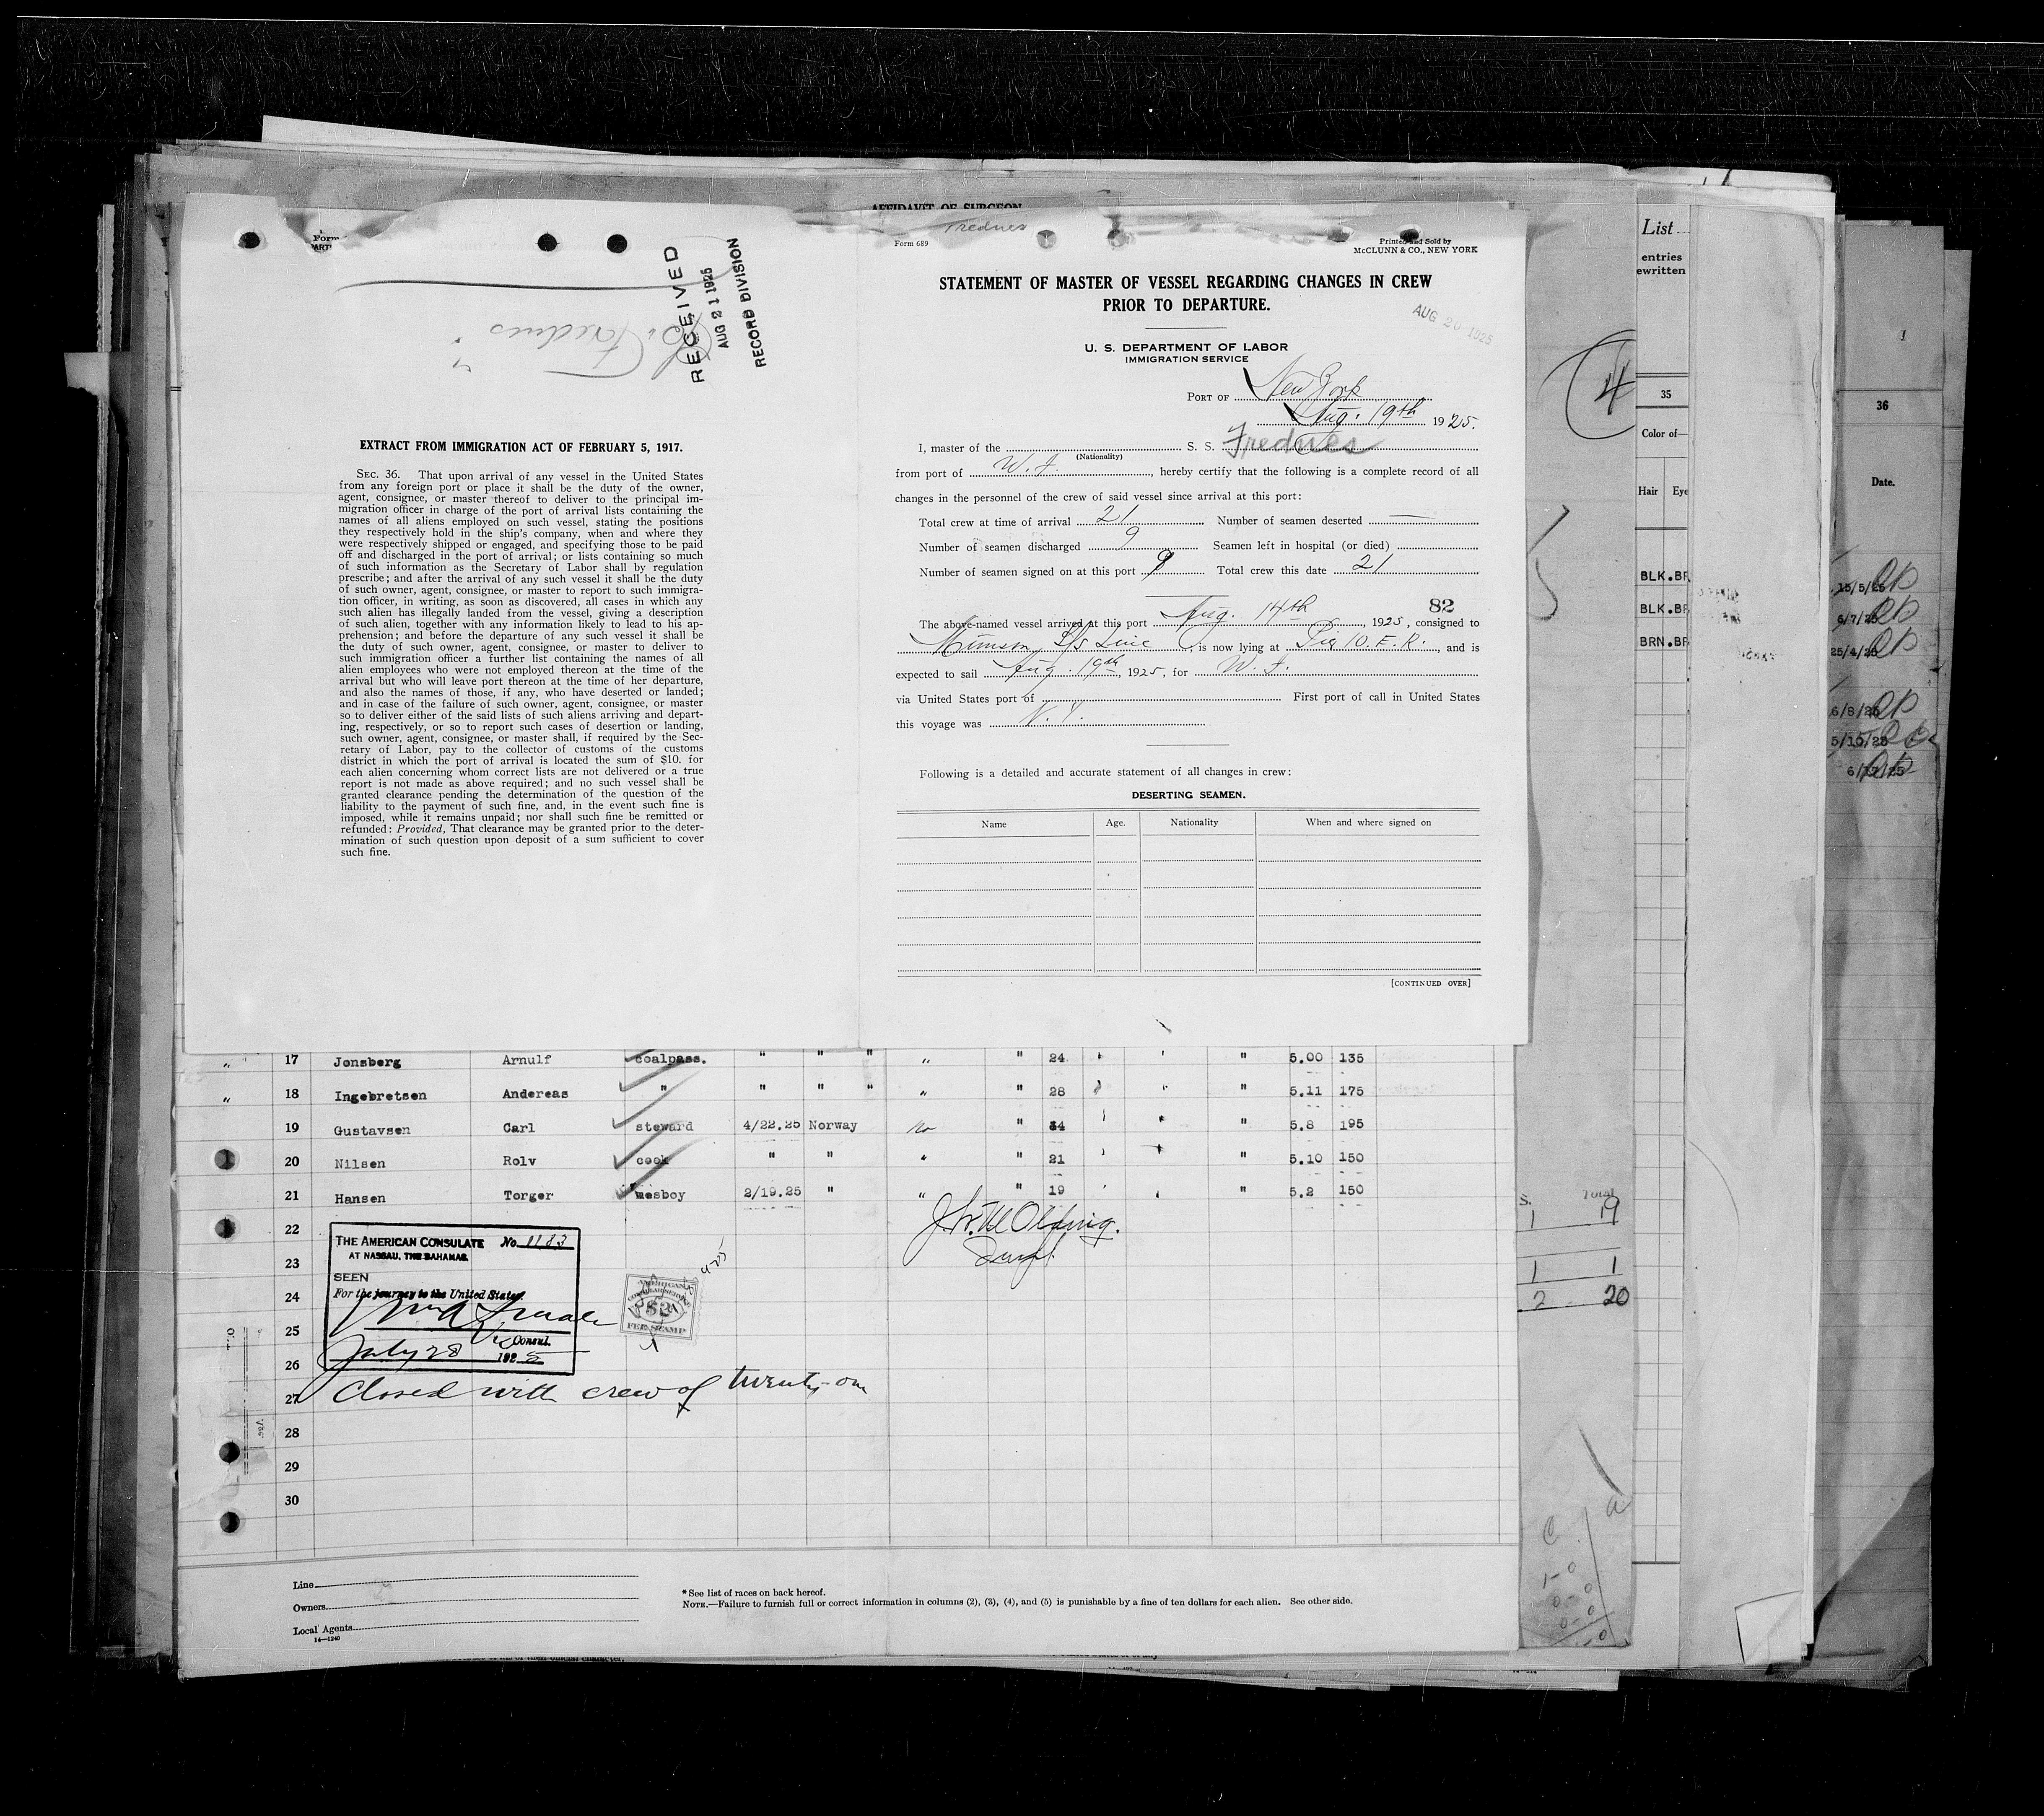 AFFIDAVIT OF SURGEON
Form
RECEIVED
AUG 21 1925
RECORD DIVISION
Frednes
EXTRACT FROM IMMIGRATION ACT OF FEBRUARY 5, 1917.
SEC. 36. That upon arrival of any vessel in the United States
from any foreign port or place it shall be the duty of the owner,
agent, consignee, or master thereof to deliver to the principal im-
migration officer in charge of the port of arrival lists containing the
names of all aliens employed on such vessel, stating the positions
they respectively hold in the ship's company, when and where they
were respectively shipped or engaged, and specifying those to be paid
off and discharged in the port of arrival; or lists containing so much
of such information as the Secretary of Labor shall by regulation
prescribe; and after the arrival of any such vessel it shall be the duty
of such owner, agent, consignee, or master to report to such immigra-
tion officer, in writing, as soon as discovered, all cases in which any
such alien has illegally landed from the vessel, giving a description
of such alien, together with any information likely to lead to his ap-
prehension; and before the departure of any such vessel it shall be
the duty of such owner, agent, consignee, or master to deliver to
such immigration officer a further list containing the names of all
alien employees who were not employed thereon at the time of the
arrival but who will leave port thereon at the time of her departure,
and also the names of those, if any, who have deserted or landed;
and in case of the failure of such owner, agent, consignee, or master
so to deliver either of the said lists of such aliens arriving and depart-
ing, respectively, or so to report such cases of desertion or landing,
such owner, agent, consignee, or master shall, if required by the Sec-
retary of Labor, pay to the collector of customs of the customs
district in which the port of arrival is located the sum of $10. for
each alien concerning whom correct lists are not delivered or a true
report is not made as above required; and no such vessel shall be
granted clearance pending the determination of the question of the
liability to the payment of such fine, and, in the event such fine is
imposed, while it remains unpaid; nor shall such fine be remitted or
refunded: Provided, That clearance may be granted prior to the deter-
mination of such question upon deposit of a sum sufficient to cover
such fine.
Frednes
Form 689
Printed and Sold by
McCLUNN & CO., NEW YORK
STATEMENT OF MASTER OF VESSEL REGARDING CHANGES IN CREW
PRIOR TO DEPARTURE.
AUG 20 1925
U. S. DEPARTMENT OF LABOR
IMMIGRATION SERVICE
PORT OF New York
Aug. 19th 1925.
I, master of the S. S. Frednes
(Nationality)
from port of W. I., hereby certify that the following is a complete record of all
changes in the personnel of the crew of said vessel since arrival at this port:
Total crew at time of arrival 21 Number of seamen deserted —
Number of seamen discharged 9 Seamen left in hospital (or died)
Number of seamen signed on at this port 9 Total crew this date 21
82
The above-named vessel arrived at this port Aug. 14th, 1925, consigned to
Munson S/s Line, is now lying at Pier 10. E. R., and is
expected to sail Aug. 19th, 1925, for W. I.
via United States port of First port of call in United States
this voyage was N. Y.
Following is a detailed and accurate statement of all changes in crew:
DESERTING SEAMEN.
Name Age. Nationality When and where signed on
[CONTINUED OVER]
" 17 Jonsberg Arnulf coalpass. " " " " " 24 " 5.00 135
" 18 Ingebretsen Andereas " " " " " " 28 " 5.11 175
19 Gustavsen Carl steward 4/22.25 Norway no " 34 " 5.8 195
20 Nilsen Rolv cook " " " " 21 " 5.10 150
21 Hansen Torger mesboy 2/19.25 " " " 19 " 5.2 150
22
23
24
25
26
27
28
29
30
THE AMERICAN CONSULATE No. 1183
AT NASSAU, THE BAHAMAS.
SEEN
For the journey to the United States.
Vice Consul.
July 28 1925
AMERICAN
CONSULAR SERVICE
$2
FEE STAMP
Closed with crew of twenty-one
Line
Owners
Local Agents
14—1240
* See list of races on back hereof.
NOTE.—Failure to furnish full or correct information in columns (2), (3), (4), and (5) is punishable by a fine of ten dollars for each alien. See other side.
List
entries
ewritten
4
35
Color of—
Hair Eye
BLK. BR
BLK. BR
BRN. BR
1
36
Date.
15/5/25
6/7/25
25/4/25
6/8/25
5/10/25
6/17/25
S. Total
1 19
1 1
2 20